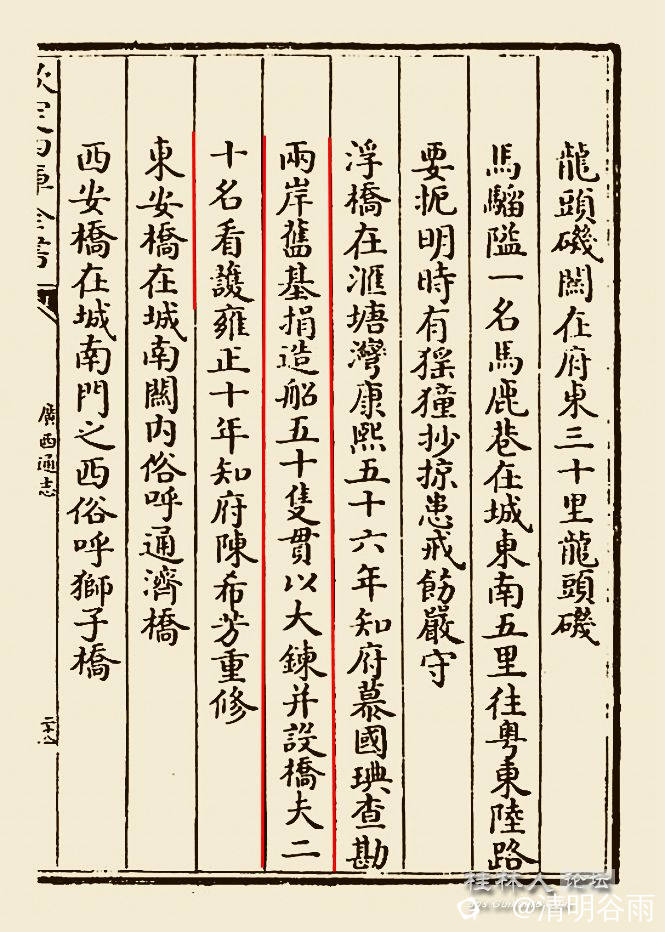 龍頭磯關在府東三十里龍頭磯
馬騮隘一名馬鹿巷在城東南五里往粤東陸路
要扼明時有猺獞抄掠患戒飭嚴守
浮橋在滙塘灣康熙五十六年知府慕國琠查勘
兩岸舊基捐造船五十隻貫以大鍊并設橋夫二
十名看護雍正十年知府陳希芳重修
東安橋在城南關内俗呼通濟橋
西安橋在城南門之西俗呼獅子橋
欽定四庫全書
廣西通志
二十八
桂林人论坛
@清明谷雨